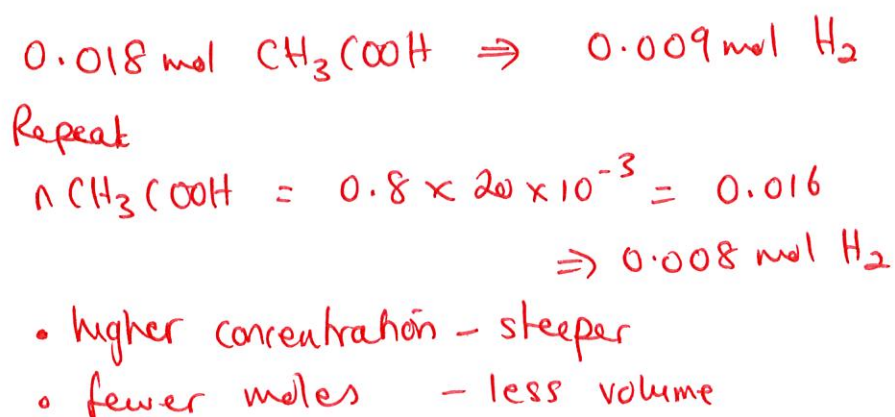 0.018 mol CH₃COOH ⇒ 0.009 mol H₂
Repeat
n CH₃COOH = 0.8 × 20 × 10⁻³ = 0.016
⇒ 0.008 mol H₂
• higher concentration – steeper
• fewer moles – less volume